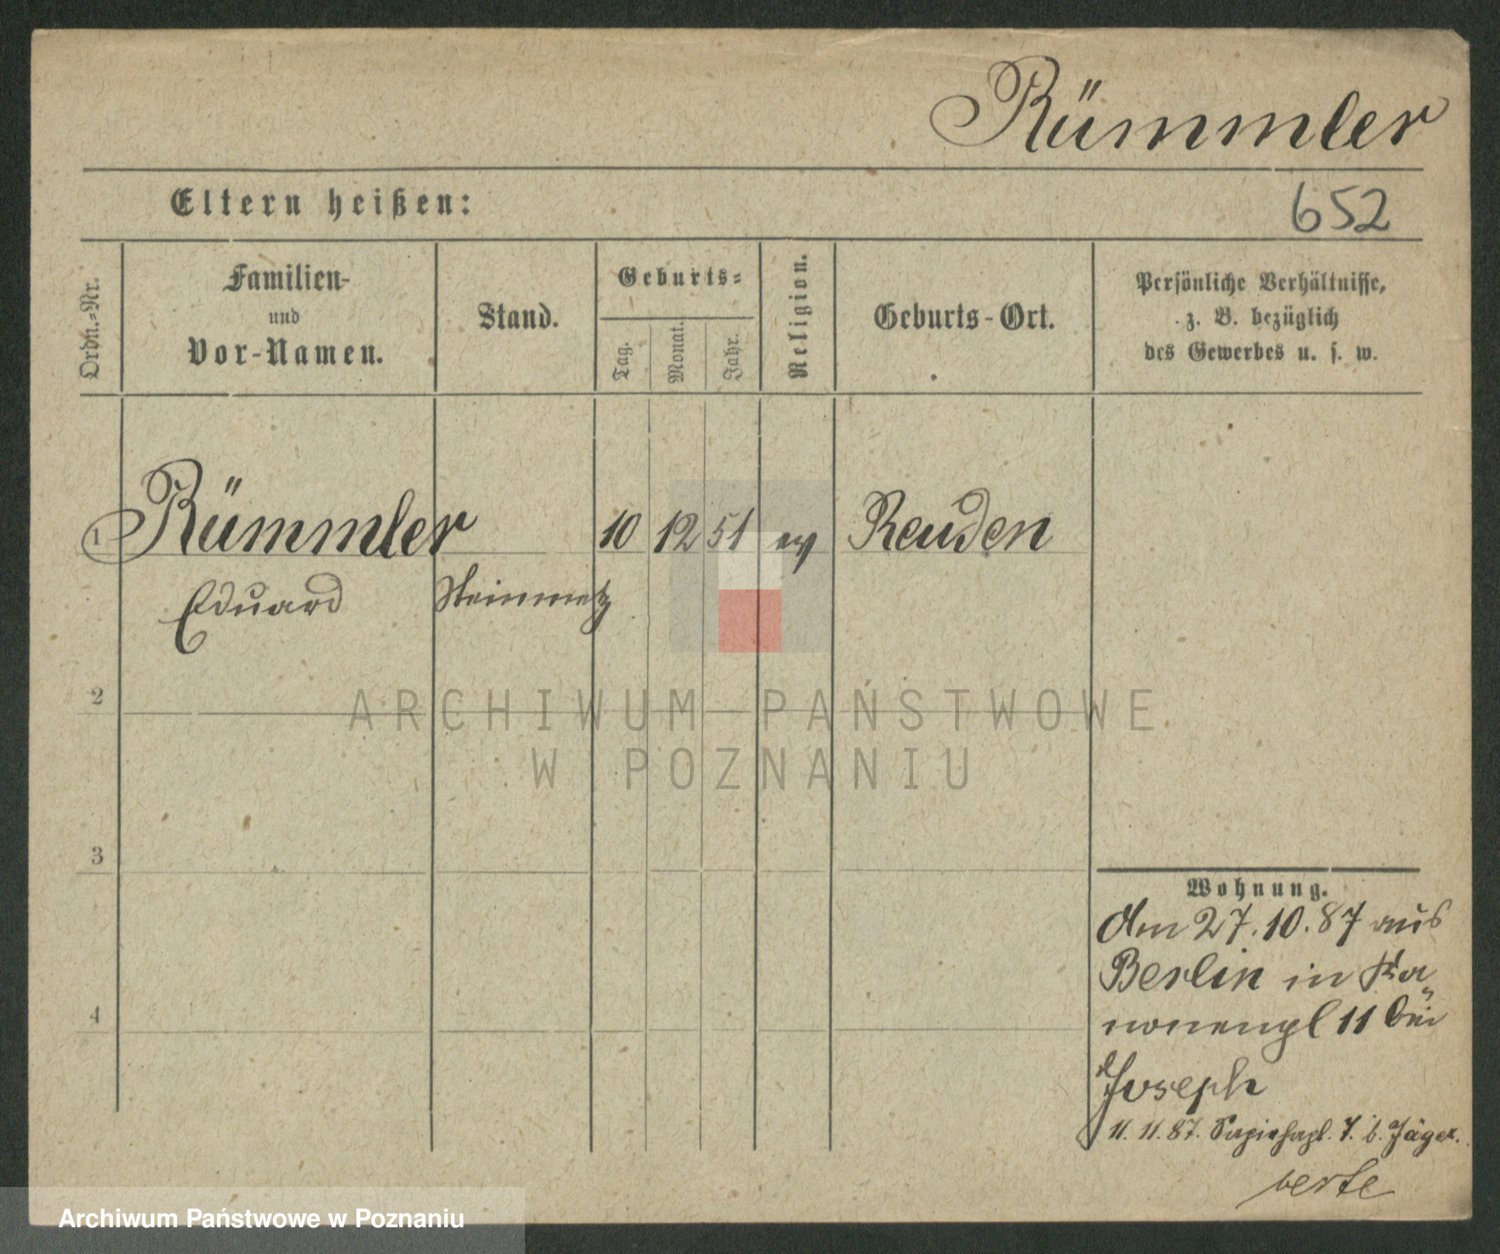 Rümmler
Eltern heißen:
652
Ordn.-Nr.
Familien-
und
Vor-Namen.
Stand.
Geburts-
Tag.
Monat.
Jahr.
Religion.
Geburts-Ort.
Persönliche Verhältnisse,
z. B. bezüglich
des Gewerbes u. s. w.
1 Rümmler 10 12 51 ev Reuden
Eduard Steinmetz
2
ARCHIWUM PAŃSTWOWE
W POZNANIU
3
Wohnung.
den 27.10.87 aus
Berlin in Ka
nonenpl 11 bei
Joseph
4
11. 11. 87. Sapiehapl. 7. b. Jäger.
Archiwum Państwowe w Poznaniu